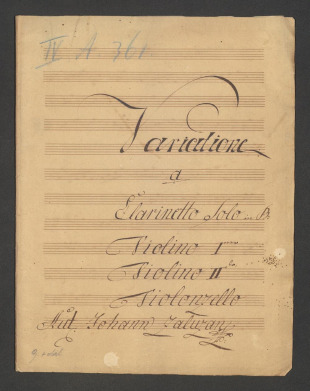 IV A 361
Variatione
a
Clarinetto Solo in B
Violino I mo
Violino II do
Violonzello
Aut. Johann